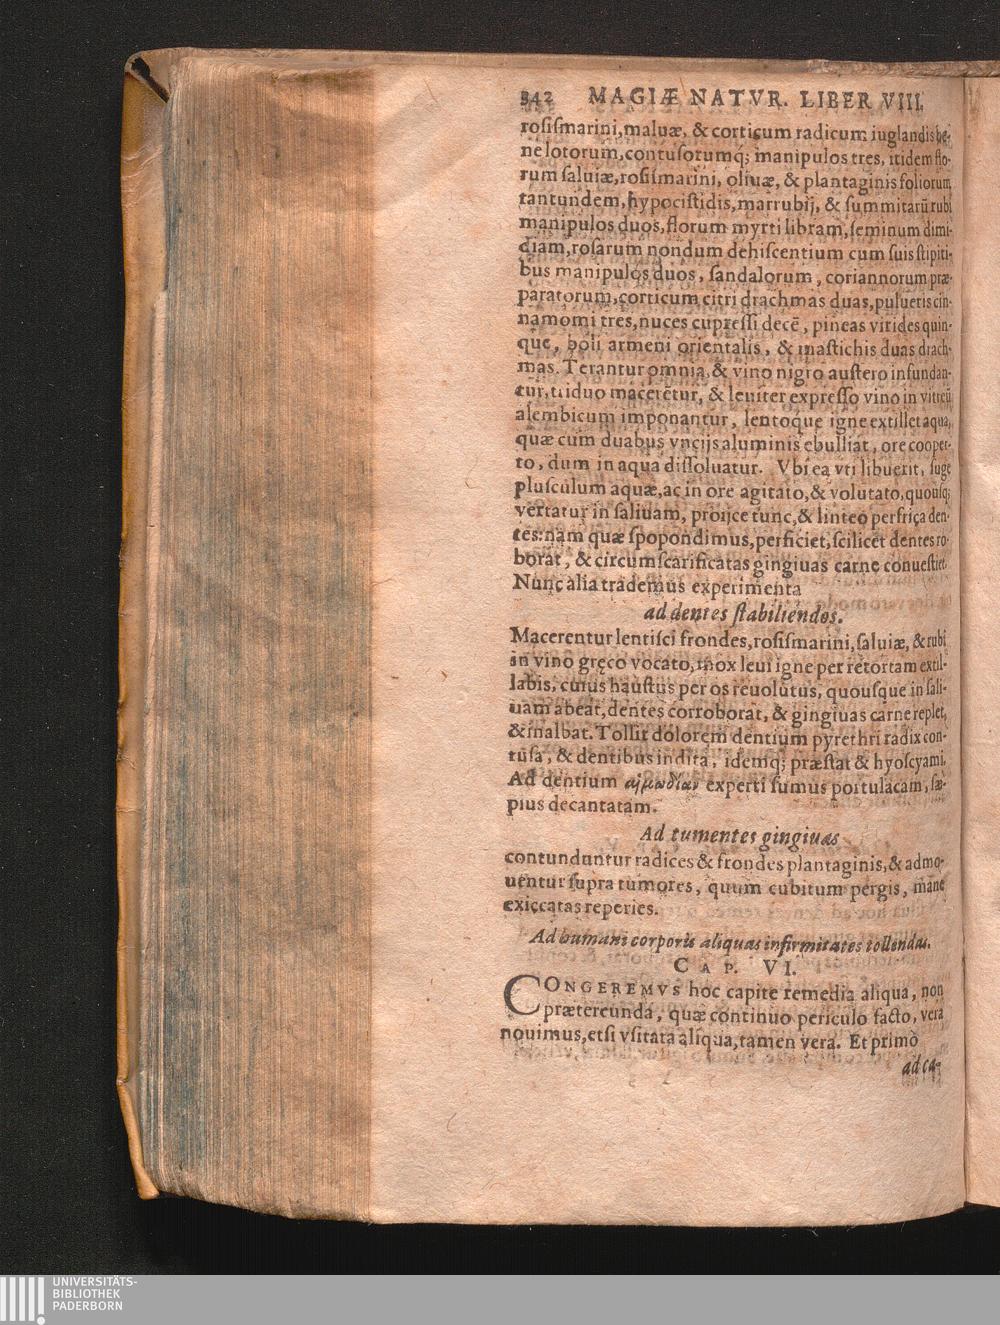 342 MAGIÆ NATVR. LIBER VIII.
rosiſmarini, maluæ, & corticum radicum iuglandis be-
ne lotorum, contuſorumq́; manipulos tres, itidem flo-
rum ſaluiæ, roſiſmarini, oliuæ, & plantaginis foliorum
tantundem, hypociſtidis, marrubij, & ſummitatũ rubi
manipulos duos, florum myrti libram, ſeminum dimi-
diam, roſarum nondum dehiſcentium cum ſuis ſtipiti-
bus manipulos duos, ſandalorum, coriannorum præ-
paratorum, corticum citri drachmas duas, pulueris cin-
namomi tres, nuces cupreſſi decẽ, pineas virides quin-
que, boli armeni orientalis, & maſtichis duas drach-
mas. Terantur omnia, & vino nigro auſtero infundan-
tur, triduo macerẽtur, & leuiter expreſſo vino in vitreũ
alembicum imponantur, lentoque igne extillet aqua,
quæ cum duabus vncijs aluminis ebulliat, ore cooper-
to, dum in aqua diſſoluatur. Vbi ea vti libuerit, ſuge
pluſculum aquæ, ac in ore agitato, & volutato, quouſq;
vertatur in ſaliuam, proijce tunc, & linteo perfrica den-
tes: nam quæ ſpopondimus, perficiet, ſcilicet dentes ro-
borat, & circumſcarificatas gingiuas carne conueſtiet.
Nunc alia trademus experimenta
ad dentes ſtabiliendos.
Macerentur lentiſci frondes, roſiſmarini, ſaluiæ, & rubi
in vino gręco vocato, mox leui igne per retortam extil-
labis, cuius hauſtus per os reuolutus, quouſque in ſali-
uam abeat, dentes corroborat, & gingiuas carne replet,
& inalbat. Tollit dolorem dentium pyrethri radix con-
tuſa, & dentibus indita, idemq́; præſtat & hyoſcyami.
Ad dentium αἱμωδίαν experti ſumus portulacam, ſæ-
pius decantatam.
Ad tumentes gingiuas
contunduntur radices & frondes plantaginis, & admo-
uentur ſupra tumores, quum cubitum pergis, mane
exiccatas reperies.
Ad humani corporis aliquas infirmitates tollendas.
CAP. VI.
CONGEREMVS hoc capite remedia aliqua, non
prætereunda, quæ continuo periculo facto, vera
nouimus, etſi vſitata aliqua, tamen vera. Et primò
ad ca-
UNIVERSITÄTS-
BIBLIOTHEK
PADERBORN